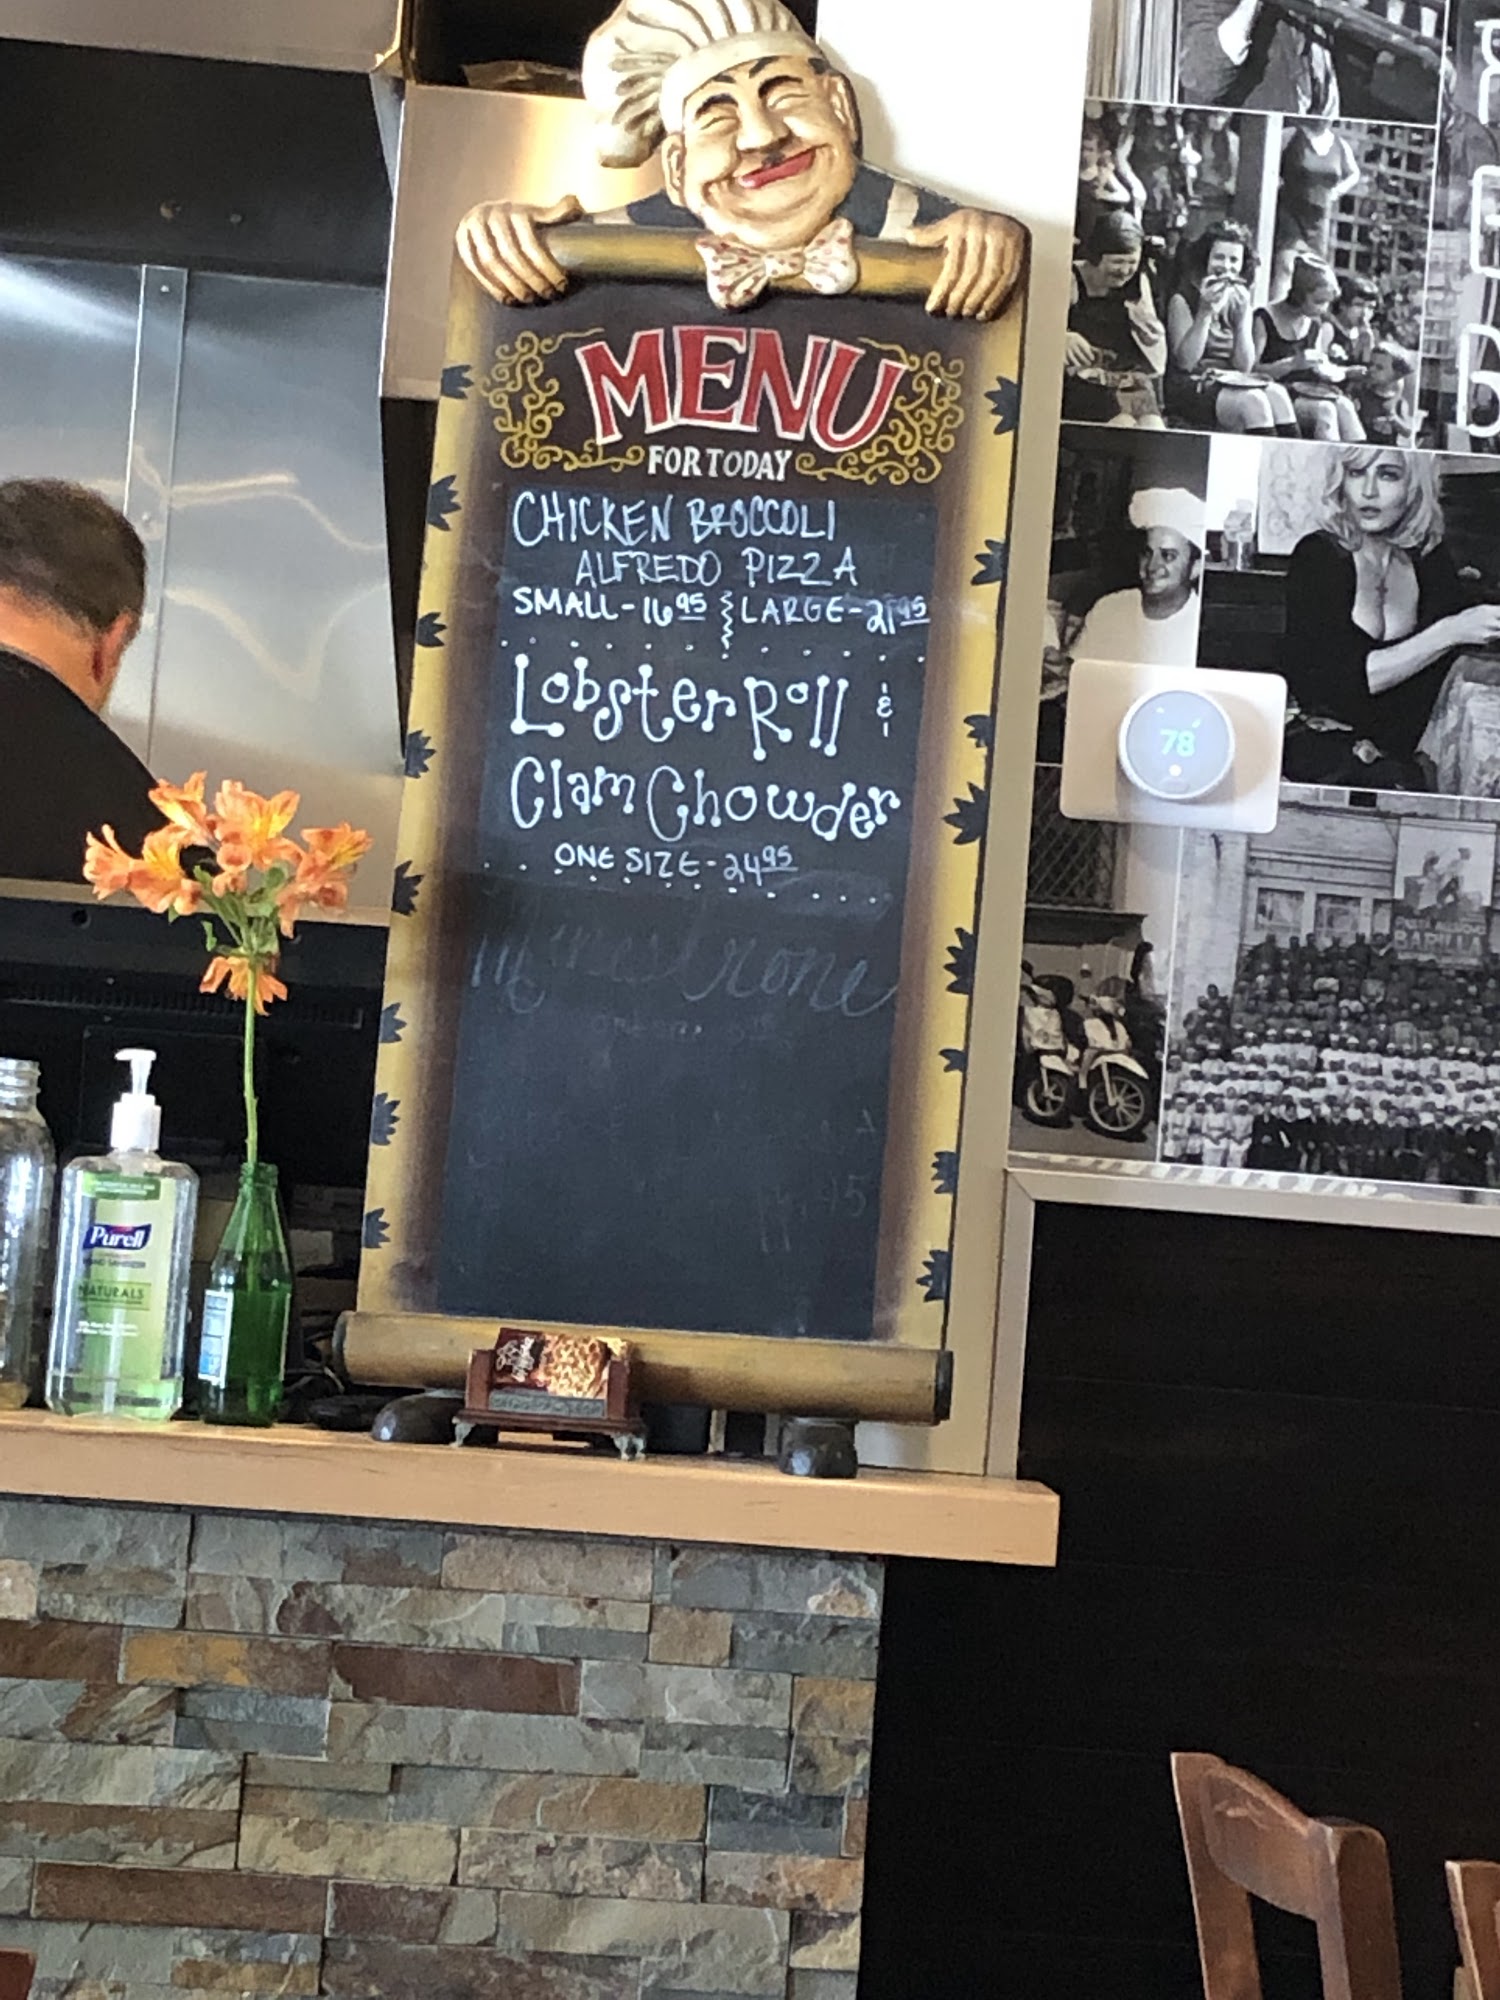 MENU
FOR TODAY
CHICKEN BROCCOLI
ALFREDO PIZZA
SMALL - 16 95 LARGE - 21 95
Lobster Roll &
Clam Chowder
ONE SIZE - 24 95
Minestrone
78
BARILLA
Purell
NATURALS